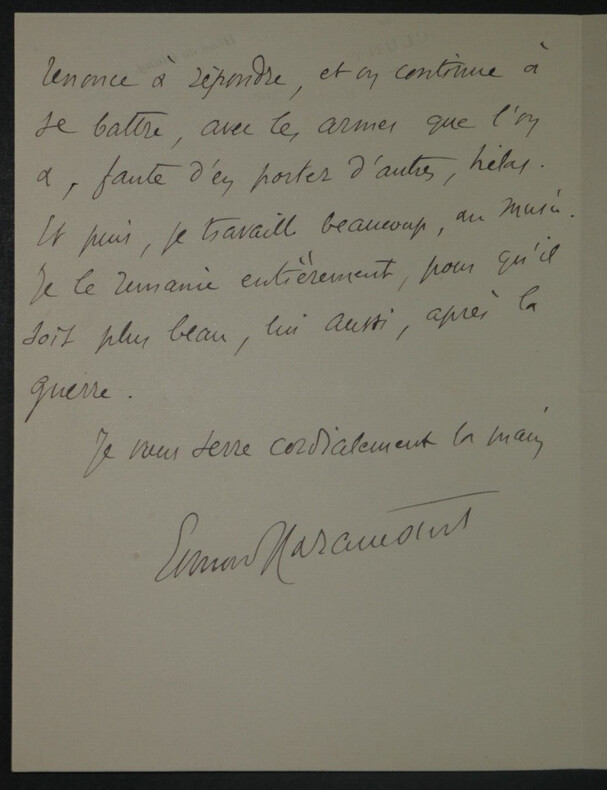 renonce à répondre, et on continue à
se battre, avec les armes que l'on
a, faute d'en porter d'autres, hélas.
Et puis, je travaille beaucoup, au Musée.
Je le remanie entièrement, pour qu'il
soit plus beau, lui aussi, après la
guerre.
Je vous serre cordialement la main
Edmond Haraucourt